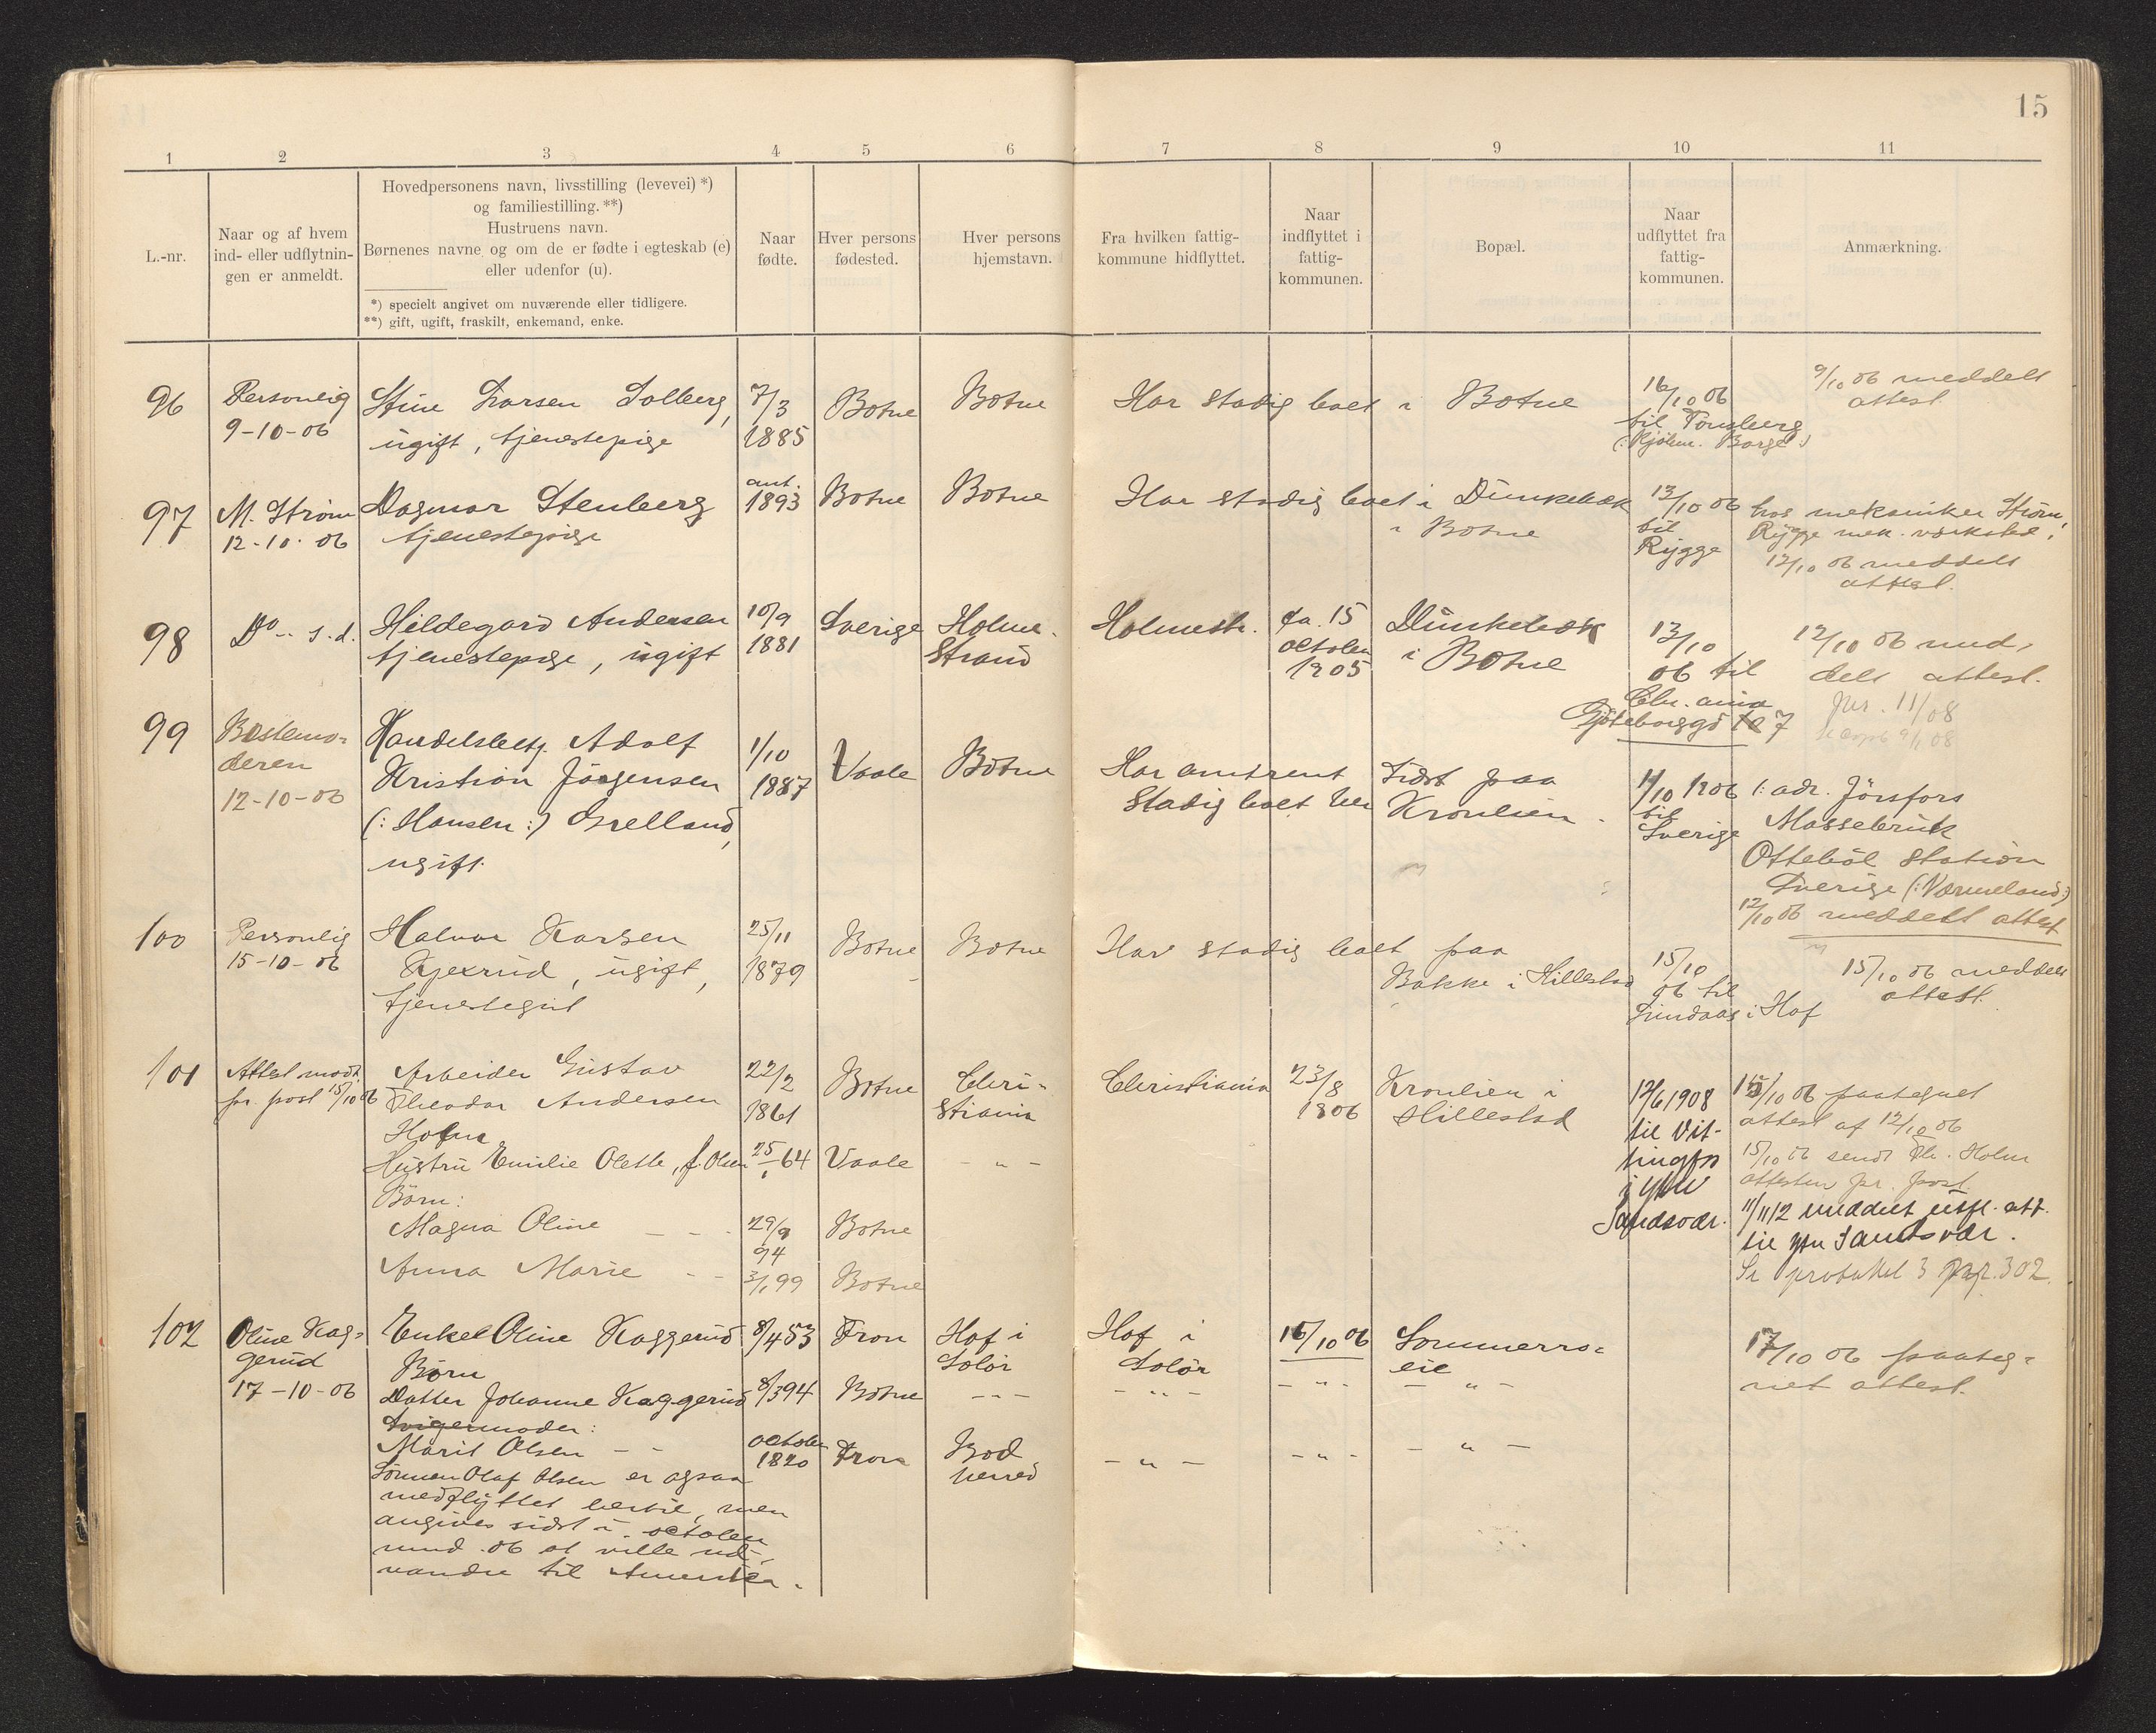 15
1 2 3 4 5 6 7 8 9 10 11
L.-nr.
Naar og af hvem
ind- eller udflytnin-
gen er anmeldt.
Hovedpersonens navn, livsstilling (levevei) *)
og familiestilling. **)
Hustruens navn.
Børnenes navne og om de er fødte i egteskab (e)
eller udenfor (u).
*) specielt angivet om nuværende eller tidligere.
**) gift, ugift, fraskilt, enkemand, enke.
Naar
fødte.
Hver persons
fødested.
Hver persons
hjemstavn.
Fra hvilken fattig-
kommune hidflyttet.
Naar
indflyttet i
fattig-
kommunen.
Bopæl.
Naar
udflyttet fra
fattig-
kommunen.
Anmærkning.
96
Personlig
9-10-06
Stine Larsen Solberg,
ugift, tjenestepige
7/3
1885
Botne
Botne
Har stadig boet i Botne
16/10 06
til Tønsberg
(: Kjøbm. Borge :)
9/10 06 meddelt
attest
97
M. Strøm
12-10-06
Dagmar Stenberg
tjenestepige
ant.
1893
Botne
Botne
Har stadig boet i Dünkebæk
i Botne
13/10 06
til
Rygge
hos mekaniker Strøm,
Rygge mek. værksted.
12/10 06 meddelt
attest.
98
Do - s. d.
Hildegard Andersen
tjenestepige, ugift
10/9
1881
Sverige
Holme-
strand
Holmestr.
ca. 15
october
1905
Dünkebæk
i Botne
13/10
06 til
Chr.ania
Gøteborggd 7
12/10 06 med-
delt attest.
Jnr. 11/08
99
Bestemo-
deren
12-10-06
Handelsbetj. Adolf
Kristian Jörgensen
(: Hansen :) Grelland,
ugift
1/10
1887
Vaale
Botne
Har omtrent
stadig boet her
Sidst paa
Kronlien.
1906
til
Sverige
(: adr. Jössfors
Massebruk
Ottebol Station
Sverige (: Värmeland :)
12/10 06 meddelt attest
100
Personlig
15-10-06
Halvor Karsen
Kjexrud, ugift,
tjenestegut
25/11
1879
Botne
Botne
Har stadig boet paa
Bakke i Hillestad
15/10
06 til
Lindaas i Hof
15/10 06 meddelt
attest.
101
Attest modt.
pr. post 15/10 06
Arbeider Gustav
Theodor Andersen
Holm
Hustru Emilie Olette, f. Olsen
Børn:
Magna Oline - -
Anna Marie - -
22/2
1861
64
29/9
94
99
Botne
Vaale
Botne
Botne
Chri-
stiania
- " -
Christiania
23/8
1906
Kronlien i
Hillestad
12/6 1908
til Vit-
tingfos
i ytre
Sandsvær.
15/10 06 paategnet
attest af 12/10 06
15/10 06 sendt Th. Holm
attesten pr. post.
11/11 12 meddelt utfl. att.
til ytre Sandsvær.
Se protokol 3 pag. 302.
102
Oline Kag-
gerud
17-10-06
Enke Oline Kaggerud
Børn
Datter Johanne Kaggerud
Svigermoder:
Marit Olsen - -
Sønnen Olaf Olsen er ogsaa
medflyttet hertil, men
angives sidst i october
mnd. 06 at ville ud-
vandre til Amerika.
8/4 53
8/3 94
october
1820
Fron
Botne
Fron
Hof i
Solør
- " -
Bod
herred
Hof i
Solør
- " -
- " -
16/10 06
- " -
- " -
Sommerrø-
eie
- " -
- " -
17/10 06 paateg-
net attest.